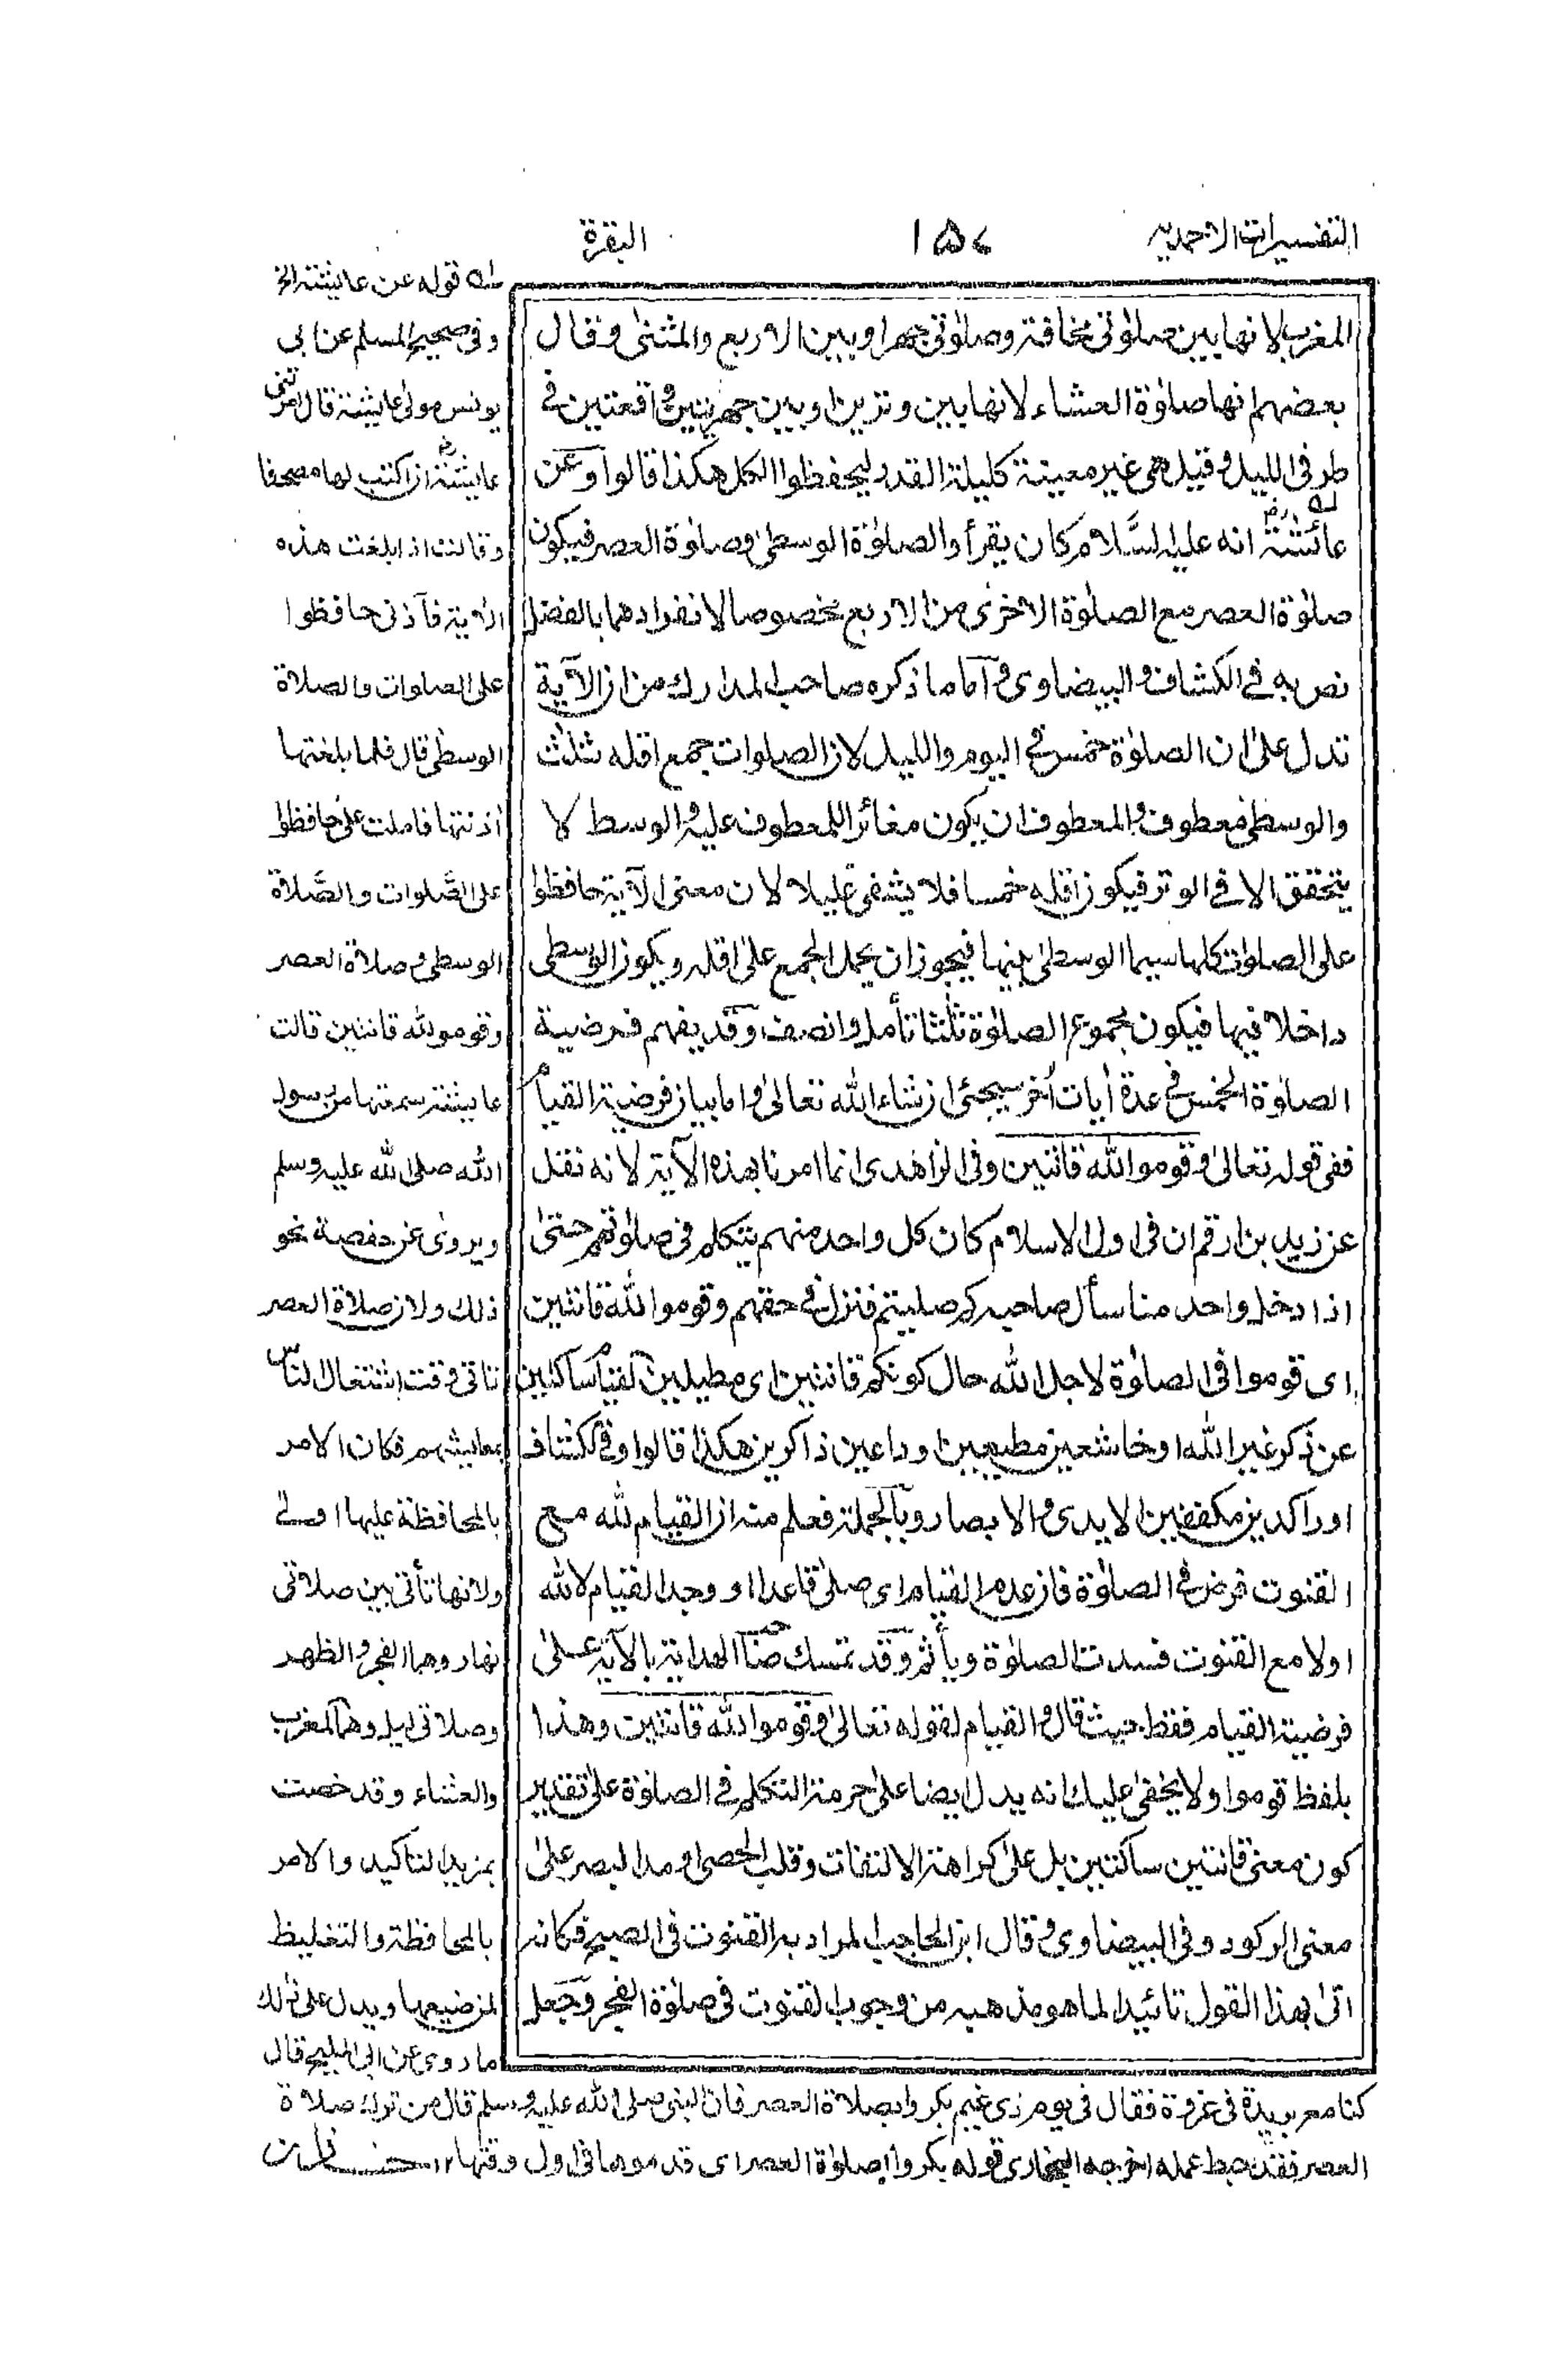 التفسيرات الاحمديه
١٥٧
البقرة
المغرب لانها بين صلوتى مخافتة وصلوتى جهر او بين الاربع والمثنى وقال
بعضهم انها صلوة العشاء لانها بين وترين او بين جهريتين واقعتين فى
طرفى الليل وقيل هى غير معينة كليلة القدر ليحفظوا الكل هكذا قالوا وعن
عائشة رض انه عليه السَّلام كان يقرأ والصلوة الوسطى وصلوة العصر فيكون
صلوة العصر مع الصلوة الاخرى من الاربع مخصوصا لانفرادهما بالفضل
نص به فى الكشاف والبيضاوى واما ما ذكره صاحب المدارك من ان الآية
تدل على ان الصلوة خمس فى اليوم والليل لان الصلوات جمع اقله ثلث
والوسطى معطوف والمعطوف ان يكون مغائرا للمعطوف عليه والوسط لا
يتحقق الا فى الوتر فيكون اقله خمسا فلا يشفى عليلا لان معنى الآية حافظوا
على الصلوت كلها سيما الوسطى بينها فيجوز ان يحمل الجمع على اقله ويكون الوسطى
داخلا فيها فيكون مجموع الصلوة ثلثا تأمل وانصف وقد يفهم فرضية
الصلوة الخمس فى عدة أيات أخر سيجئ ان شاء الله تعالى واما بيان فرضية القيام
ففى قوله تعالى وقوموا لله قانتين وفى الزاهدى انما امرنا بهذه الآية لانه نقل
عن زيد بن ارقم ان فى اول الاسلام كان كل واحد منهم يتكلم فى صلوتهم حتى
اذا دخل واحد منا سأل صاحبه كم صليتم فنزل فى حقهم وقوموا لله قانتين
اى قوموا فى الصلوة لاجل الله حال كونكم قانتين اى مطيلين القيام ساكتين
عن ذكر غير الله او خاشعين مطيعين او داعين ذاكرين هكذا قالوا وفى الكشاف
او راكدين مكففين الايدى والابصار وبالجملة فعلم منه ان القيام لله مع
القنوت فرض فى الصلوة فان عدم القيام اى صلى قاعدا او وجد القيام لا لله
او لا مع القنوت فسدت الصلوة ويأثم وقد تمسك صاحب الهداية بالآية على
فرضية القيام فقط حيث قال والقيام لقوله تعالى وقوموا لله قانتين وهذا
بلفظ قوموا ولا يخفى عليك انه يدل ايضا على حرمة التكلم فى الصلوة على تقدير
كون معنى قانتين ساكتين بل على كراهة الالتفات وقلب الحصى ومد البصر على
معنى الركود وفى البيضاوى وقال ابن الحاجب المراد به القنوت فى الصبح فكانه
اتى بهذا القول تائيدا لما هو مذهبه من وجوب القنوت فى صلوة الفجر وجعل
له قوله عن عايشة الخ
وفى صحيح المسلم عن ابى
يونس مولى عايشة قال امرتنى
عايشة رض ان اكتب لها مصحفا
وقالت اذا بلغت هذه
الآية فآذنى حافظوا
على الصلوات والصلاة
الوسطى قال فلما بلغتها
أذنتها فاملت على حافظوا
على الصَّلوات والصَّلاة
الوسطى وصلاة العصر
وقوموا لله قانتين قالت
عايشة سمعتها من رسول
الله صلى الله عليه وسلم
ويروى عن حفصة نحو
ذلك ولان صلاة العصر
تاتى وقت اشتغال الناس
بمعايشهم فكان الامر
بالمحافظة عليها اولى
ولانها تأتى بين صلاتى
نهار وهما الفجر والظهر
وصلاتى ليل وهما المغرب
والعشاء وقد خصت
بمزيد التاكيد والامر
بالمحافظة والتغليظ
لمن ضيعها ويدل على ذلك
ما روى عن ابى المليح قال
كنا مع بريدة فى غزوة فقال فى يوم ذى غيم بكروا بصلاة العصر فان النبى صلى الله عليه وسلم قال من ترك صلاة
العصر فقد حبط عمله اخرجه البخارى قوله بكروا بصلوة العصر اى قدموها فى اول وقتها ١٢